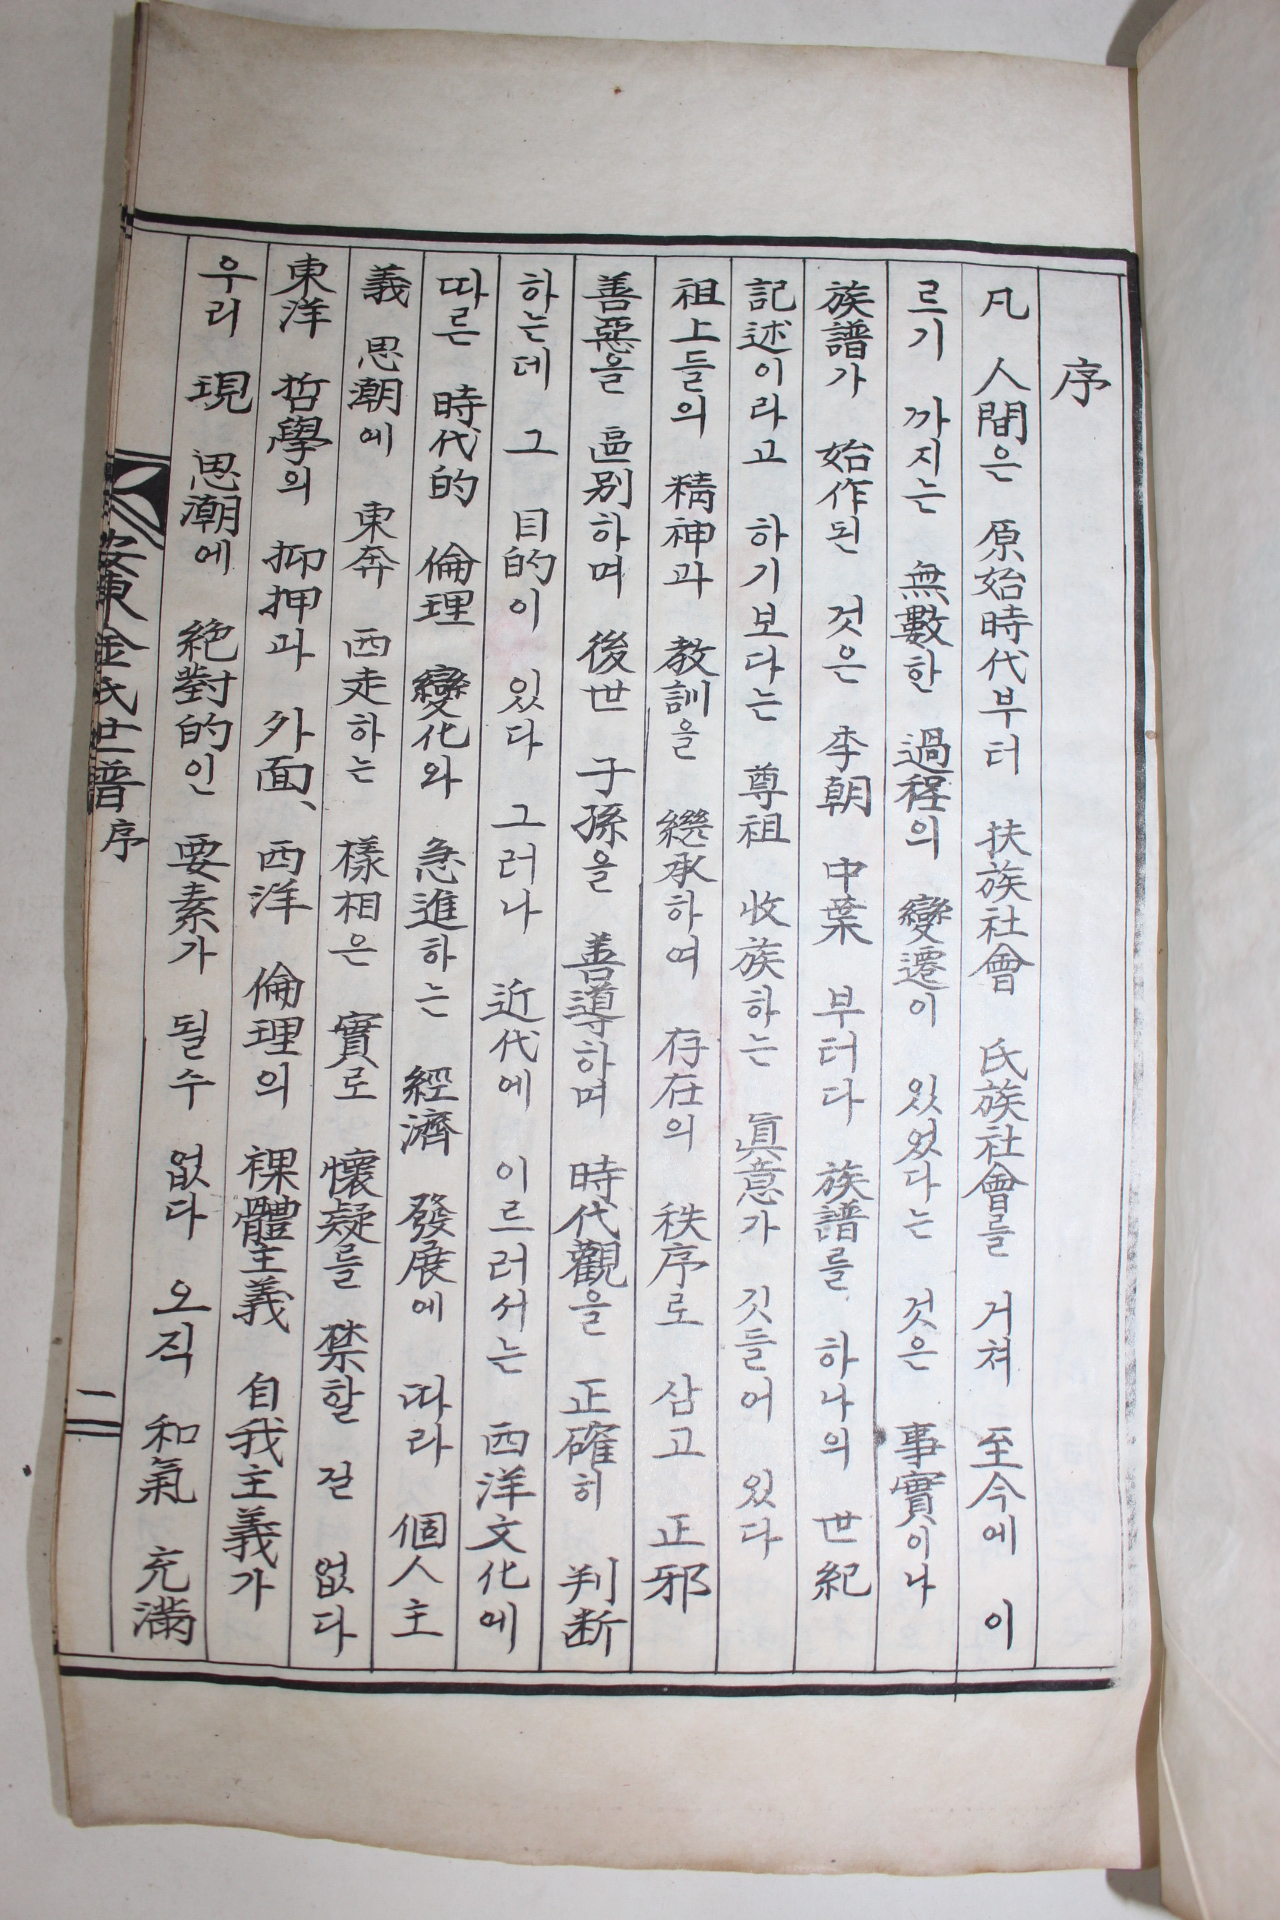 序
凡 人間은 原始時代부터 扶族社會 氏族社會를 거쳐 至今에 이
르기 까지는 無數한 過程의 變遷이 있었다는 것은 事實이나
族譜가 始作된 것은 李朝 中葉 부터다 族譜를 하나의 世紀
記述이라고 하기보다는 尊祖 收族하는 眞意가 깃들어 있다
祖上들의 精神과 教訓을 繼承하여 存在의 秩序로 삼고 正邪
善惡을 區別하며 後世 子孫을 善導하며 時代觀을 正確히 判断
하는데 그 目的이 있다 그러나 近代에 이르러서는 西洋文化에
따른 時代的 倫理 變化와 急進하는 經濟 發展에 따라 個人主
義 思潮에 東奔 西走하는 樣相은 實로 懷疑를 禁할 길 없다
東洋 哲學의 抑押과 外面、 西洋 倫理의 裸體主義 自我主義가
우리 現 思潮에 絶對的인 要素가 될수 없다 오직 和氣 充滿
安東金氏世譜 序
一